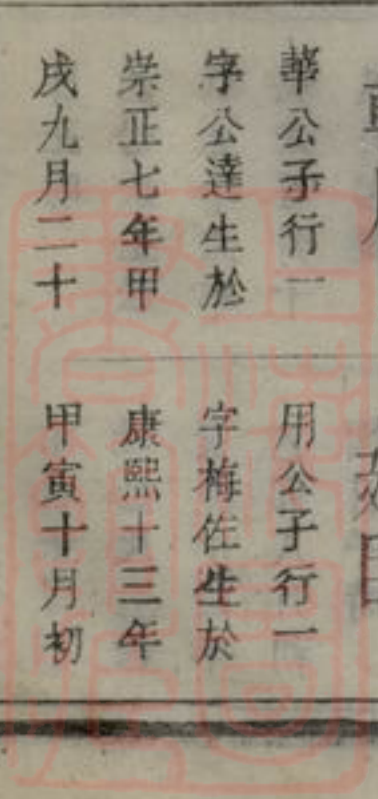 華公子行一
字公達生於
崇正七年甲
戌九月二十
用公子行一
字梅佐生於
康熙十三年
甲寅十月初